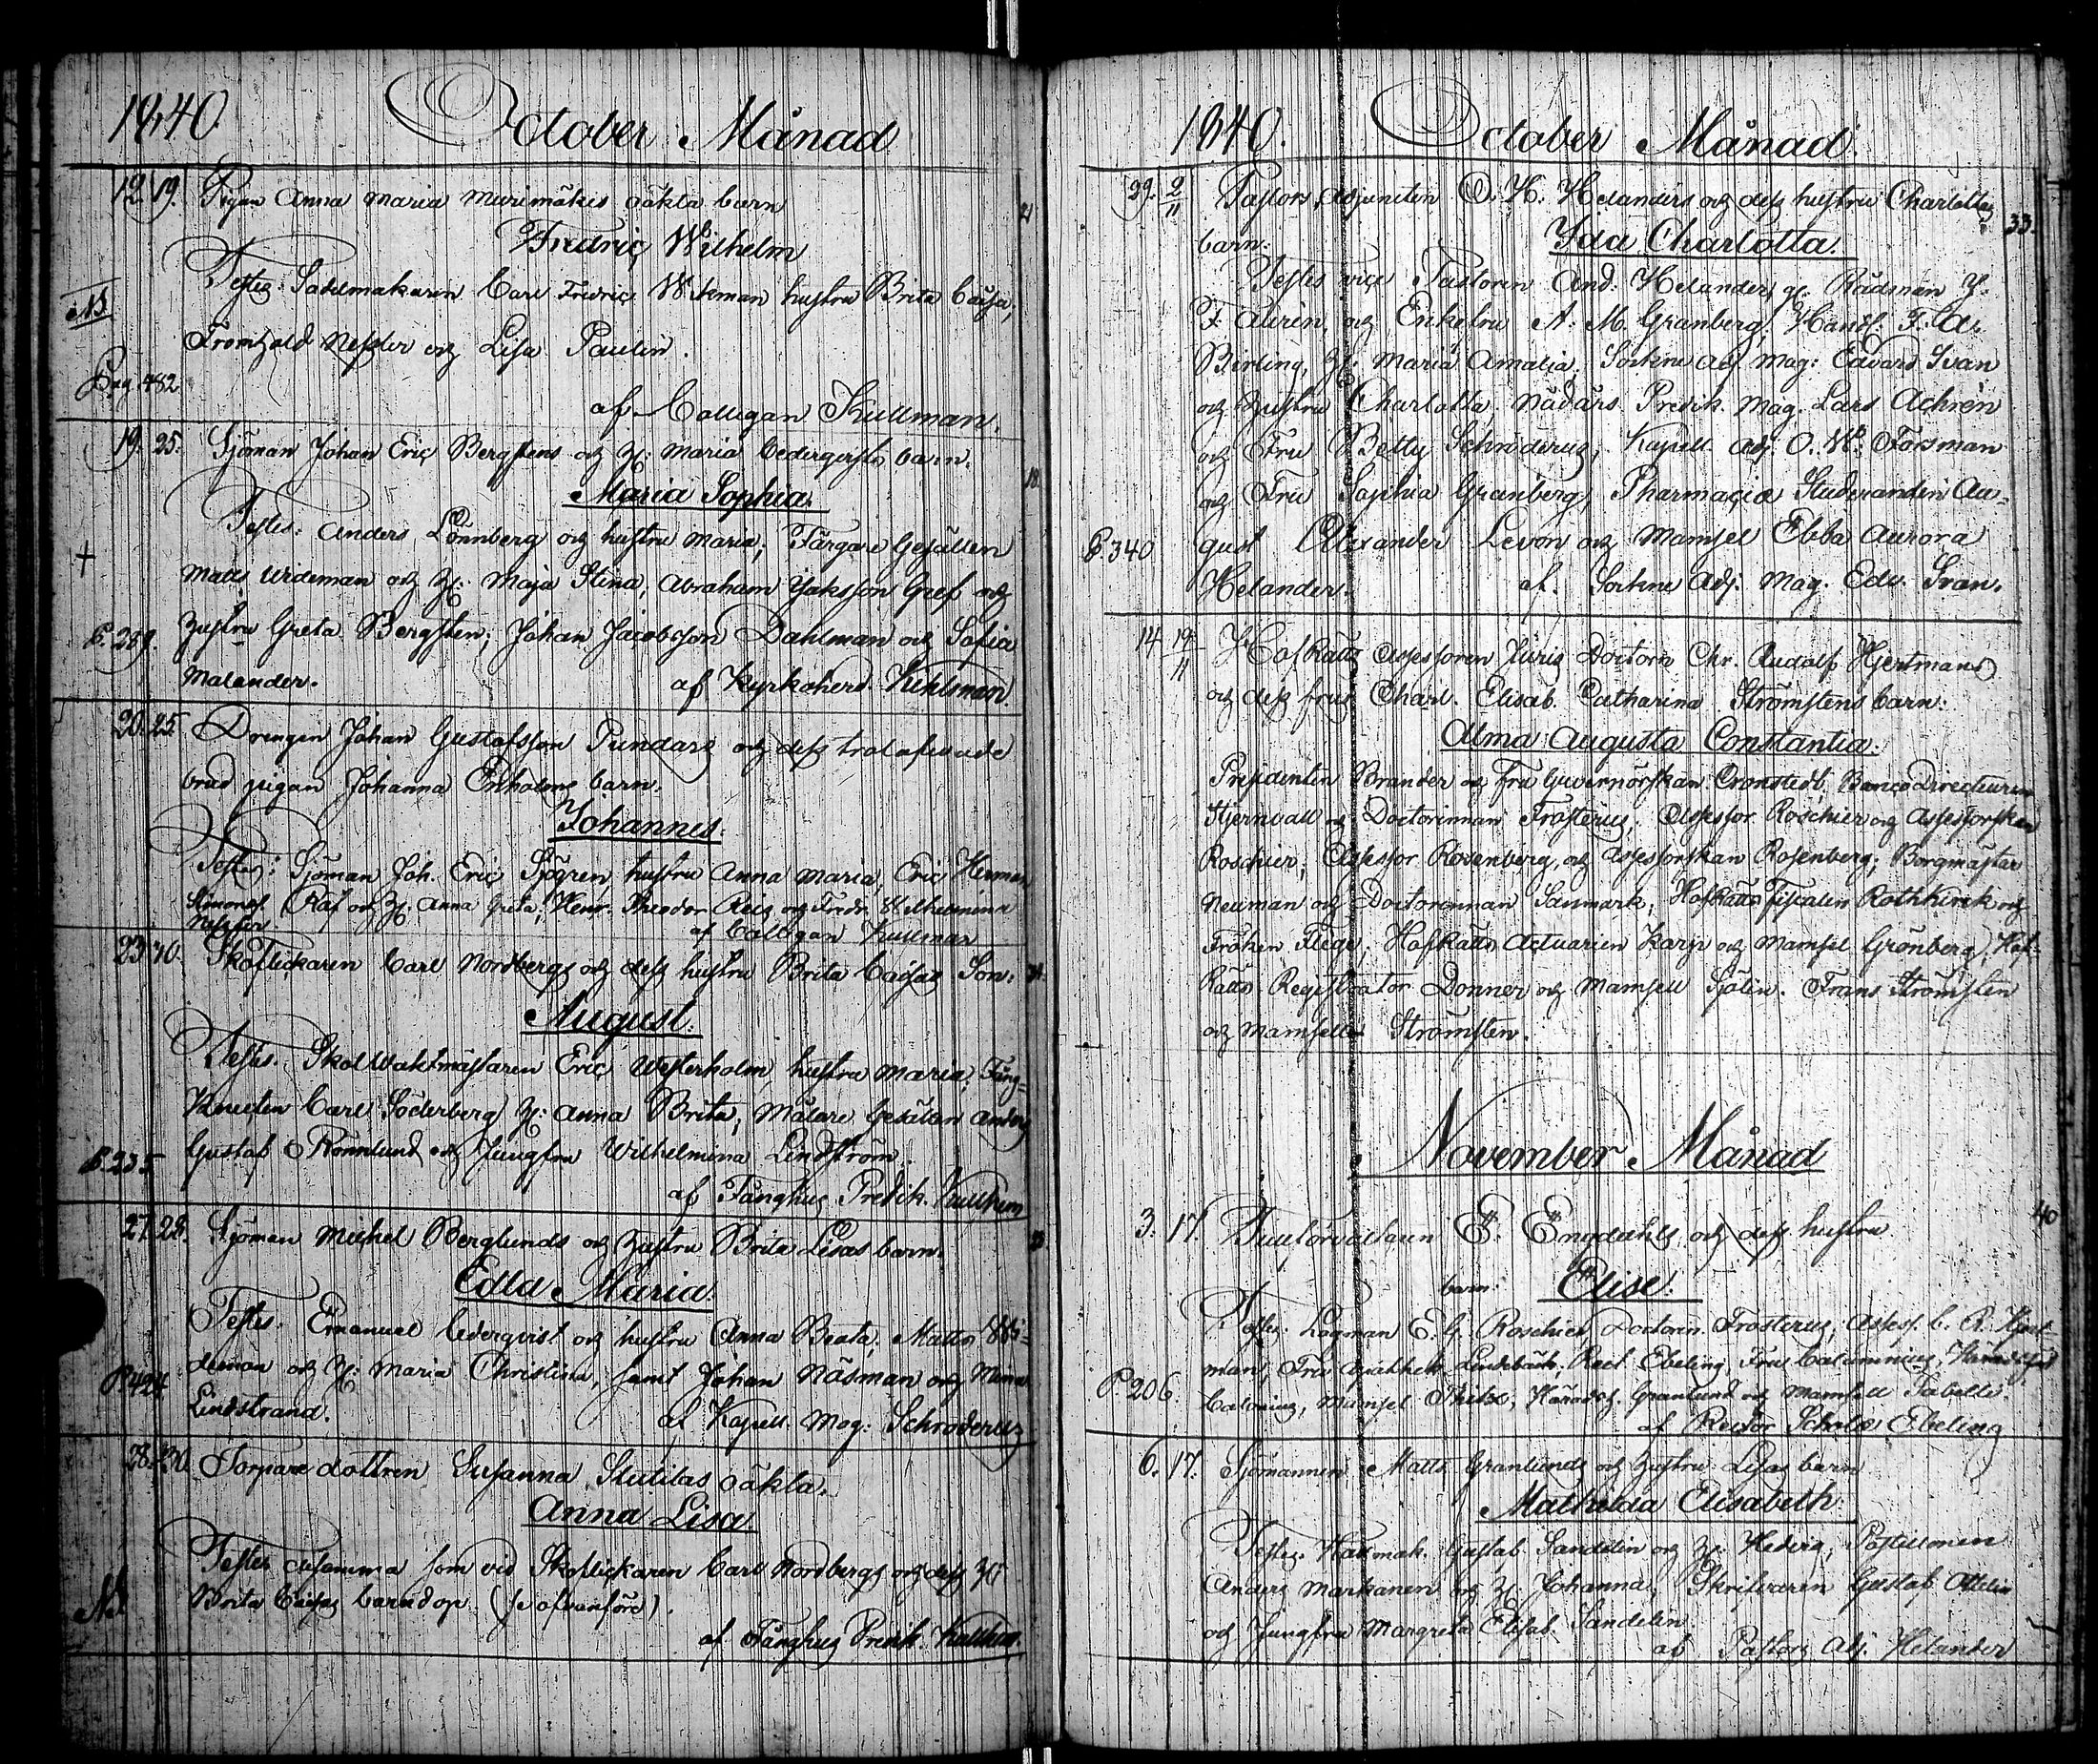 1840. October Månad
12. 19. Pigan Anna Maria Murimäkis oäkta barn 21
Fredric Wilhelm
Testes: Sadelmakaren Carl Fredric Wikman hustru Brita Caisa;
NB
Fromhold Nessler och Lisa Paulin.
Pag. 482
af Collegan Kullman.
19. 25. Sjöman Johan Eric Bergstens och H: Maria Cedergrens barn. 18.
Maria Sophia.
Testes: Anders Lönnberg och hustru Maria; Färgare Gesällen
†
Matts Wideman och H: Maja Stina; Abraham Jakssson Gref och
P. 259. Hustru Greta Bergsten; Johan Jacobsson Dahlman och Sofia
Malander. af Kyrkoherd.
20. 25. Drengen Johan Gustafsson Pundars och dess trolofvade
brud pigan Johanna Enholms barn.
Johannes.
Testes: Sjöman Joh. Eric Sjögren, hustru Anna Maria; Eric Herman
Simonss. Räf och H: Anna Greta; Henr. Theodor och Fredr. Wilhelmina
Nessler af Collegan Kullman
23 30. Skoflickaren Carl Nordbergs och dess hustru Brita Caisas Son:
August.
Testes. Skolwaktmästaren Eric Westerholm, hustru Maria; Fång-
Knecten Carl Söderberg H: Anna Brita; Målare Gesällen Anders
P. 235 Gustaf Rönnlund och Jungfru Wilhelmina Lindström.
af Fånghus Predik.
27. 28. Sjöman Michel Berglunds och hustru Brita Lisas barn.
Edla Maria.
Testes. Emanuel Cederqvist och hustru Anna Beata, Matts Wi-
P. 424 deman och H: Maria Christina, samt Johan Näsman och Mina
Lindstrand. af Kapell. Mag: Schroderus
28. 30. Torpare dottren Susanna Slutilas oäkta.
Anna Lisa
Testes desamma som vid Skoflickaren Carl Nordbergs och dess H:
NB Brita Caisas barndop. (se ofvanföre).
af Fånghus Predik.
1840. October Månad.
29. 9/11 Pastors Adjuncten O. H. Helanders och dess hustru Charlottas 33.
barn: Ida Charlotta.
Testes vice Pastoren And: Helander, gl. Rådman J:
F. Aurén, och Enkefru A: M. Granberg, Handl: F:
Berling, H: Maria Amalia. Sockne Adj. Mag: Edvard Svan
och Hustru Charlotta, Nådårs Predik. Mag. Lars Achrén
och Fru Betty Schroderus, Kapell. Adj. O. W: Forsman
och Fru Sophia Granberg, Pharmaciæ Studeranden Au-
P. 340 gust Alexander Levon och Mamsel Ebba Aurora
Helander. af. Sockne Adj. Mag. Edv. Svan.
14 19/11 HofRätts Assessoren Juris Doctorn Chr. Rudolf Hjertmans
och dess frus Charl. Elisab. Catharina Strömstens barn:
Alma Augusta Constantia:
Presidenten Brander och Fru Guvernörskan Cronstedt, Banco Directeuren
Stjernvall och Doctorinnan Frosterus; Assessor Roschier och Assessorskan
Roschier; Assessor Rosenberg, och Assessorskan Rosenberg; Borgmästar
Neuman och Doctorinnan Sanmark; HofRätts Fiscalen Rothkirck och
Fröken Flege; HofRätts Actuarien Karp och Mamsel Grönberg; Hof-
Rätts Registrator Donner och Mamsell Sjölin. Frans Strömsten
och Mamsell Strömsten.
November Månad
3. 17. E. Engdahls och dess hustru 40
barn: Elise.
Testes. Lagman E. G. Roschier, Doctorn Frosterus, Assess. C. R. Hjert-
man; Fru Lindebäck; Rect. Ebeling, Fru Calamnius,
P. 206. Calonius, Mamsel Häradsh. Granlund och Mamsell Tabelle.
af Rector Scholæ Ebeling
6. 17. Sjömannen Matts Granlunds och hustru Lisas barn
Mathilda Elisabeth.
Testes. Hattmak. Gustaf Sandelin och H: Hedvig; Postillionen
Anders Markanen och H: Johanna; Skrifvaren Gustaf
och Jungfru Margreta Elisab. Sandelin.
af Pastors Adj. Helander